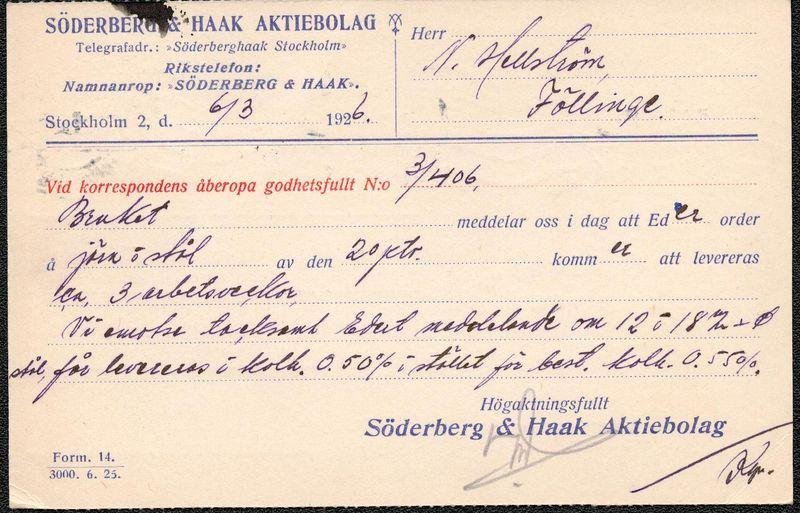 SÖDERBERG & HAAK AKTIEBOLAG
Telegrafadr.: »Söderberghaak Stockholm»
Rikstelefon:
Namnanrop: »SÖDERBERG & HAAK».
Stockholm 2, d. 6/3 1926.
Herr
N. Hellström,
Föllinge.
Vid korrespondens åberopa godhetsfullt N:o 3/406,
Bruket meddelar oss i dag att Eder order
å järn & stål av den 20 komm er att levereras
ca, 3 arbetsveckor,
Vi emotse tacksamt Edert meddelande om 12 & 18
stål, får levereras i kolh. 0.50% i stället för best. kolh. 0.55%.
Högaktningsfullt
Söderberg & Haak Aktiebolag
Form. 14.
3000. 6. 25.